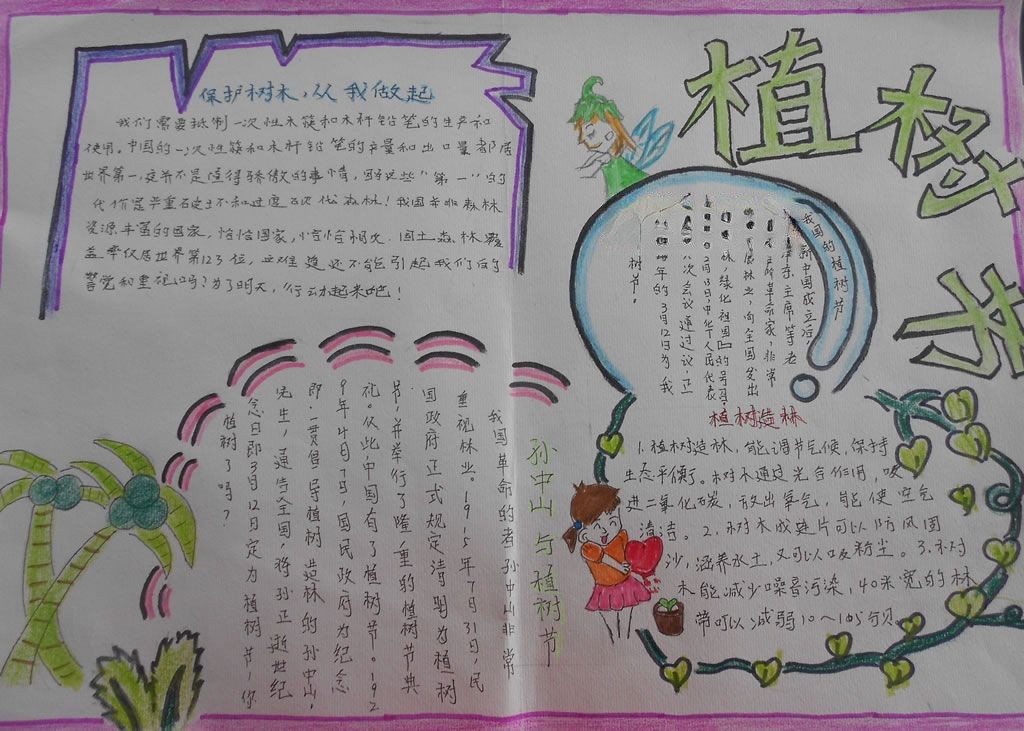 植树节
保护树木,从我做起
我们需要抵制一次性木筷和木杆铅笔的生产和
使用。中国的一次性筷和木杆铅笔的产量和出口量都居
世界第一,这并不是值得骄傲的事情,因为这些“第一”的
代价是严重破坏和过度砍伐森林!我国并非森林
资源丰富的国家,恰恰国家,恰恰相反,国土森林覆
盖率仅居世界第123位,这难道还不能引起我们的
警觉和重视吗?为了明天,行动起来吧!
我国的植树节
新中国成立后,
主席等老
革命家,非常
展林业,向全国发出
林,绿化祖国』的号召,
2月23日,中华人民代表
八次会议通过议,正
年的3月12日为我
树节。
植树造林
1.植树造林,能调节气候,保持
生态平衡。树木通过光合作用,吸
进二氧化碳,放出氧气,能使空气
清洁。2.树木成片可以防风固
沙,涵养水土,又可以吸粉尘。3.树
木能减少噪音污染,40米宽的林
带可以减弱10~15分贝。
孙中山与植树节
我国革命的者孙中山非常
重视林业。1915年7月31日,民
国政府正式规定清明为植树
节,并举行了隆重的植树节典
礼。从此,中国有了植树节。192
9年4月7日,国民政府为纪念
即,一贯倡导植树造林的孙中山,
先生,通告全国,将孙正逝世纪
念日即3月12日定为植树节,你
植树了吗?